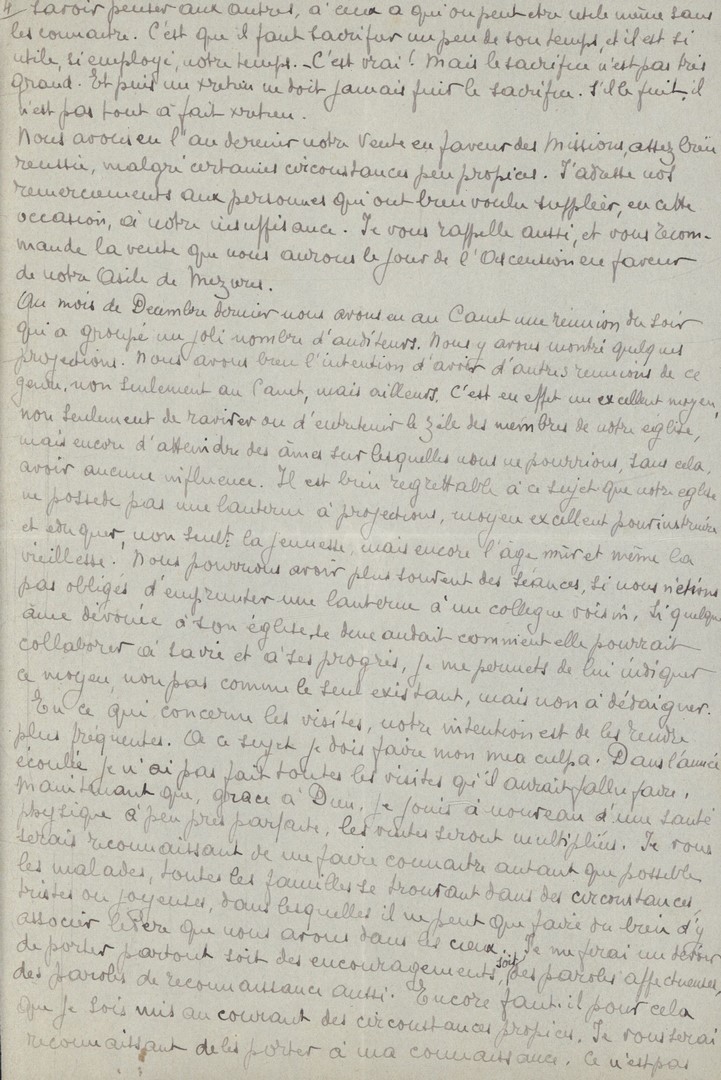 4/ savoir penser aux autres, à ceux a qui on peut etre utile même sans
les connaitre. C'est que il faut sacrifier un peu de son temps, et il est si
utile, si employé, notre temps. - C'est vrai! Mais le sacrifice n'est pas très
grand. Et puis un xretien ne doit jamais fuir le sacrifice. S'il le fuit, il
n'est pas tout à fait xretien.
Nous avons eu l'an dernier notre Vente en faveur des Missions, assez bien
reussie, malgré certaines circonstances peu propices. J'adresse nos
remerciements aux personnes qui ont bien voulu suppléer, en cette
occasion, à notre insuffisance. Je vous rappelle aussi, et vous recom-
mande la vente que nous aurons le jour de l'Ascension en faveur
de notre Asile de Mezures.
Au mois de Decembre dernier nous avons eu au Canet une réunion du soir
qui a groupé un joli nombre d'auditeurs. Nous y avons montré quelques
projections. Nous avons bien l'intention d'avoir d'autres reunions de ce
genre, non seulement au Canet, mais ailleurs. C'est en effet un excellent moyen,
non seulement de raviver ou d'entretenir le zèle des membres de notre église,
mais encore d'atteindre des âmes sur lesquelles nous ne pourrions, sans cela,
avoir aucune influence. Il est bien regrettable à ce sujet que notre eglise
ne possede pas une lanterne à projections, moyen excellent pour instruire
et eduquer, non seult la jeunesse, mais encore l'âge mûr et même la
vieillesse. Nous pourrions avoir plus souvent des séances, si nous n'etions
pas obligés d'emprunter une lanterne à un collegue voisin. Si quelque
âme dévouée à son église, se demandait comment elle pourrait
collaborer à sa vie et à ses progrès, je me permets de lui indiquer
ce moyen, non pas comme le seul existant, mais non à dédaigner.
En ce qui concerne les visites, notre intention est de les rendre
plus fréquentes. A ce sujet je dois faire mon mea culpa. Dans l'année
écoulée je n'ai pas fait toutes les visites qu'il aurait fallu faire.
Maintenant que, grace à Dieu, je jouis à nouveau d'une santé
physique à peu près parfaite, les visites seront multipliées. Je vous
serais reconnaissant de me faire connaitre autant que possible
les malades, toutes les familles se trouvant dans des circonstances
tristes ou joyeuses, dans lesquelles il ne peut que faire du bien d'y
associer le Père que nous avons dans les cieux. Je me ferai un devoir
de porter partout soit des encouragements, soit des paroles affectueuses,
des paroles de reconnaissance aussi. Encore faut-il pour cela
que je sois mis au courant des circonstances propices. Je vous serai
reconnaissant de les porter à ma connaissance. Ce n'est pas